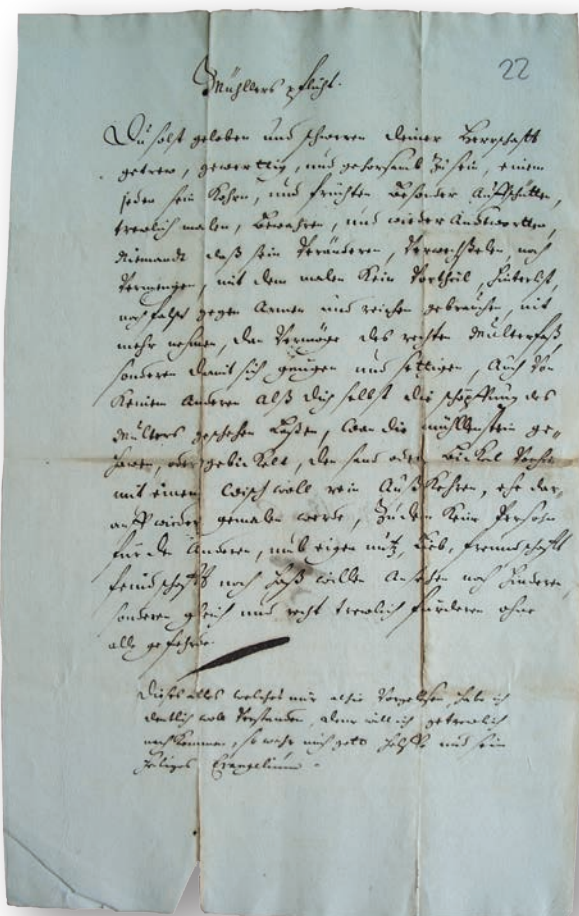 22
Müllers pflicht.
Du solst geloben und schweren deiner Herrschafft
getrew, gewerttig, und gehorsamb zu sein, einem
jeden sein Kohrn, und früchten besonder auffschütten,
trewlich malen, bewahren, und wieder andtwortten,
Niemandt daß sein verändern, verwechßelen, noch
vermengen, mit dem malen kein vortheil, hinterlist,
noch falsch gegen Armen und reichen gebrauchen, nit
mehr nehmen, dan vermöge des rechten Multerfaß,
sonderen damit sich genügen und settigen, Auch von
keinem Anderen alß dich selbst die schöpffung des
Multers geschehen laßen, wan die mühllenstein ge-
hawen, oder gebickelt, den sand oder bickel
mit einem wisch woll rein außkehren, ehe dar-
auff wieder gemalen werde, zu dem kein Persohn
für den Anderen, umb eigen nutz, lieb, freundschafft
feindschafft noch haß willen ansehen noch hinderen,
sonderen gleich und recht trewlich fürderen ohne
alle gefehrde.
Dießes alles welches mir alhie vorgelesen, habe ich
deutlich woll verstanden, deme will ich getrewlich
nachkommen, so wahr mich gott helffe und sein
heiliges Evangelium.